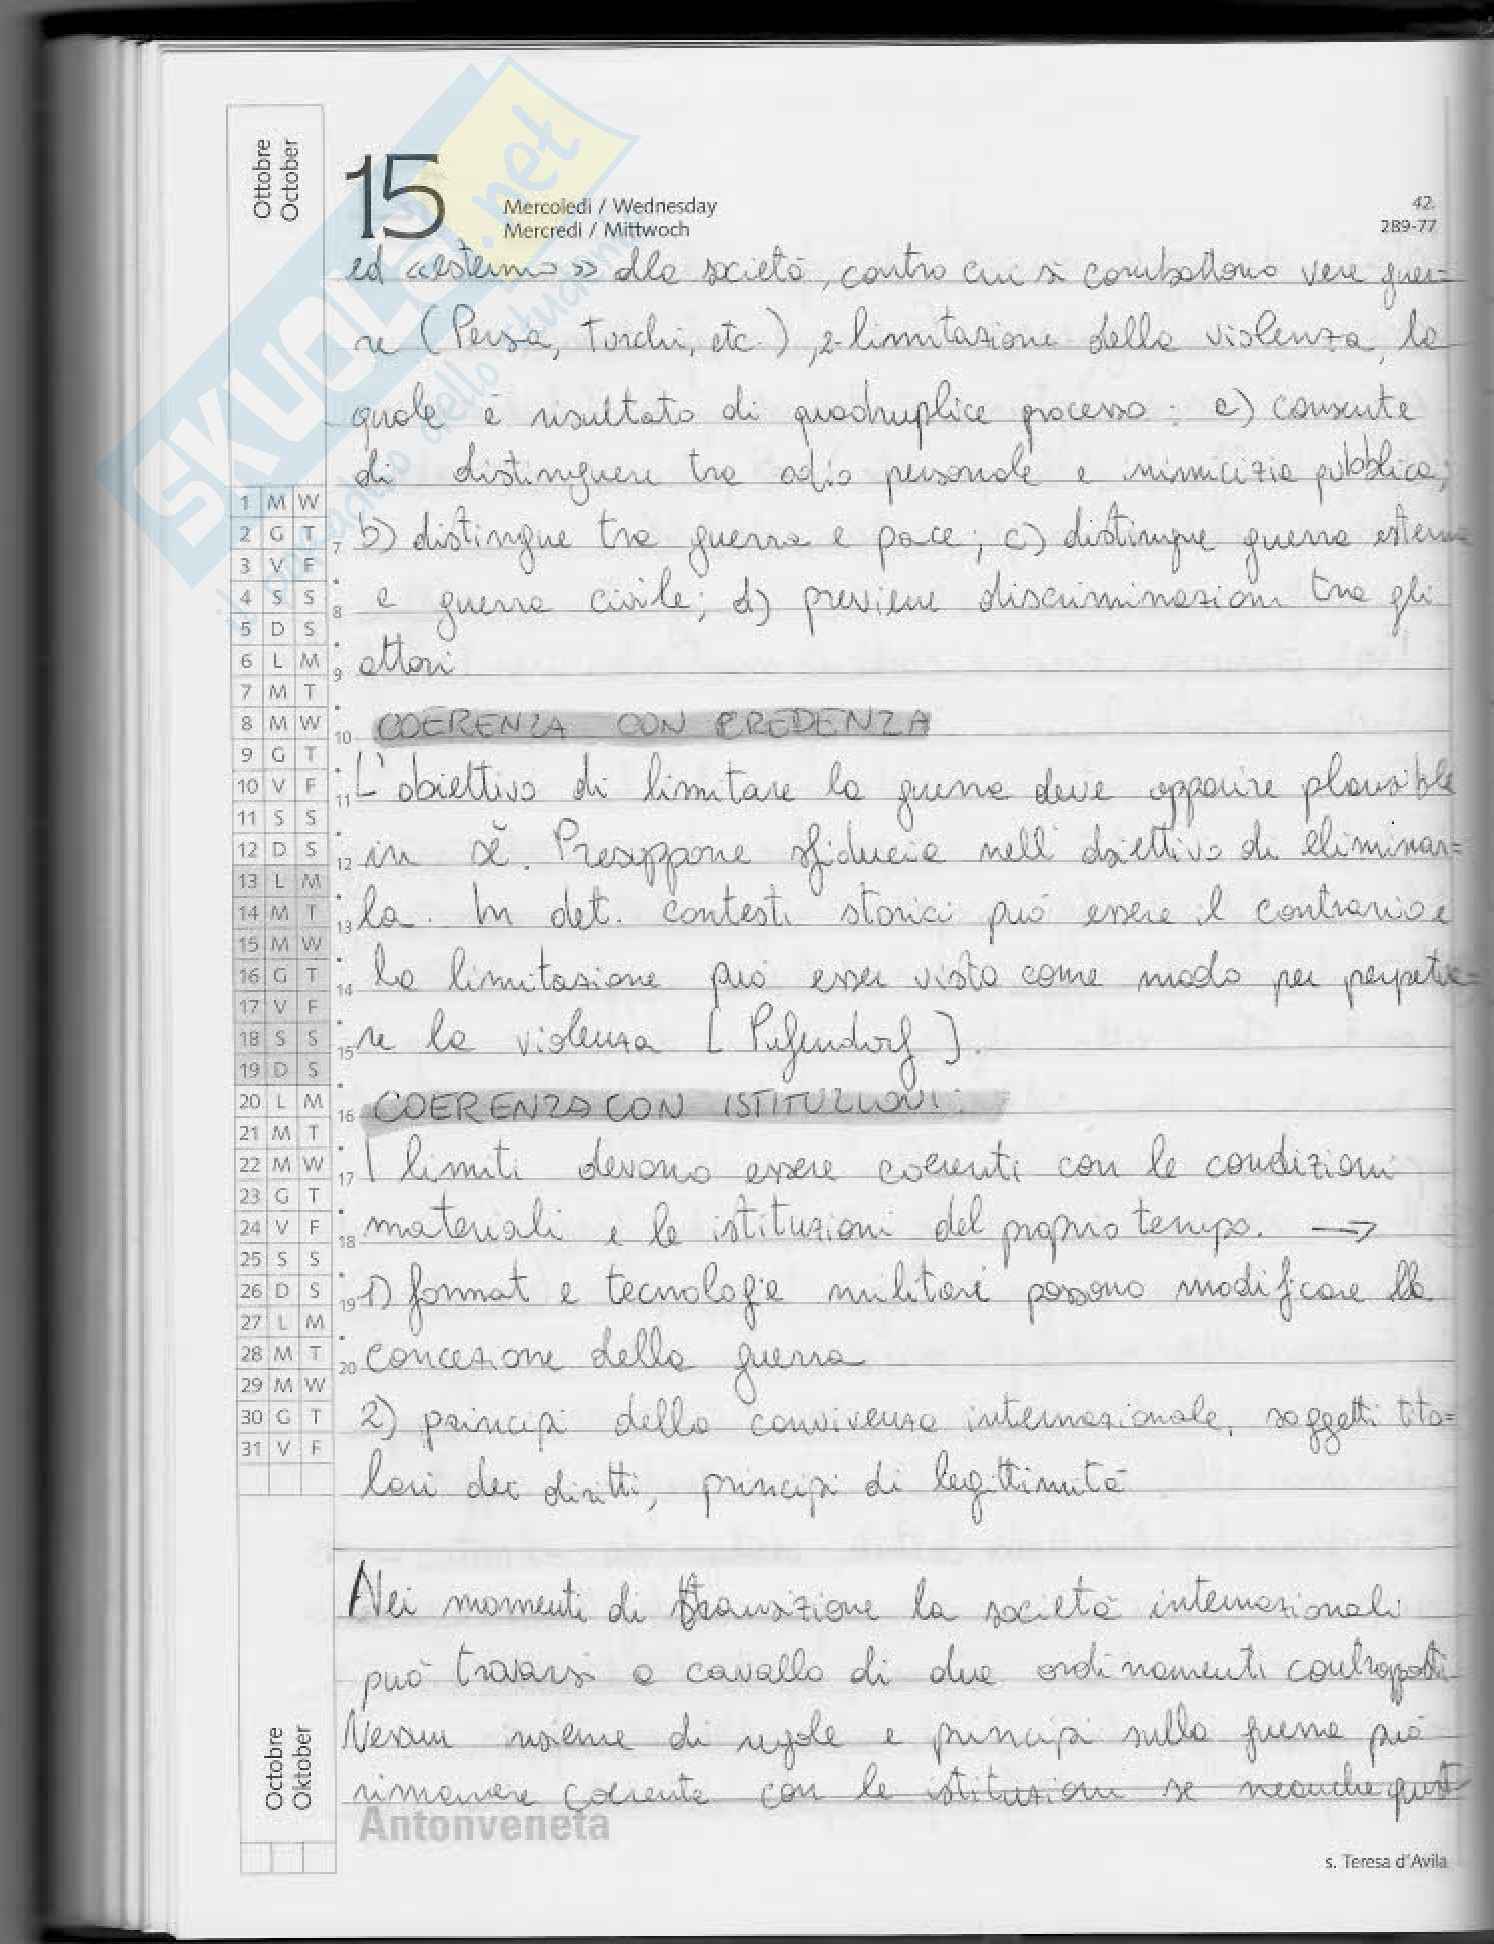 Ottobre
October
15
Mercoledì / Wednesday
Mercredi / Mittwoch
42.
289-77
SKUOLA.net
ed «esterno» alla società, contro cui si combattono vere guer=
re (Persia, Turchi, etc.), 2-limitazione della violenza, la
quale è risultato di quadruplice processo: a) consente
di distinguere tra odio personale e inimicizia pubblica;
b) distingue tra guerra e pace; c) distingue guerra esterna
e guerra civile; d) previene discriminazioni tra gli
attori
COERENZA CON CREDENZA
L'obiettivo di limitare la guerra deve apparire plausibile
in sé. Presuppone sfiducia nell'obiettivo di eliminar=
la. In det. contesti storici può essere il contrario e
la limitazione può esser visto come modo per perpetua=
re la violenza [Pufendorf].
COERENZA CON ISTITUZIONI:
I limiti devono essere coerenti con le condizioni
materiali e le istituzioni del proprio tempo. →
1) format e tecnologie militari possono modificare la
concezione della guerra
2) principi della convivenza internazionale, soggetti tito=
lari dei diritti, principi di legittimità
Nei momenti di transizione la società internazionali
può trovarsi a cavallo di due ordinamenti contrapposti
Nessun insieme di regole e principi sulla guerra può
rimanere coerente con le istituzioni se neanche quest
1 M W
2 G T 7
3 V F
4 S S 8
5 D S
6 L M 9
7 M T
8 M W 10
9 G T
10 V F 11
11 S S
12 D S 12
13 L M
14 M T 13
15 M W
16 G T 14
17 V F
18 S S 15
19 D S
20 L M 16
21 M T
22 M W 17
23 G T
24 V F 18
25 S S
26 D S 19
27 L M
28 M T 20
29 M W
30 G T
31 V F
Octobre
Oktober
Antonveneta
s. Teresa d'Avila